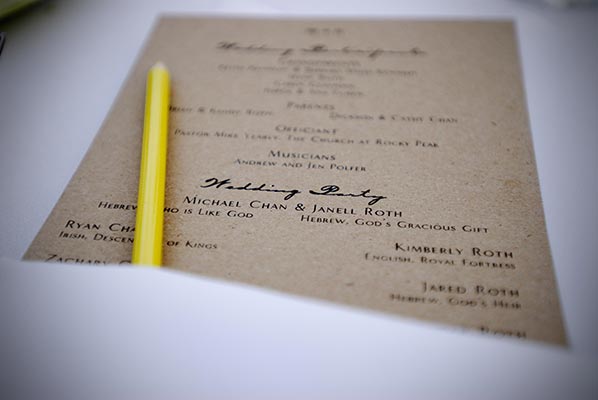 Wedding Participants
Grandparents
Parents
& Kathy Roth Dickson & Cathy Chan
Officiant
Pastor Mike Yearly, The Church at Rocky Peak
Musicians
Andrew and Jen Polfer
Wedding Party
Michael Chan & Janell Roth
Hebrew, Who is Like God Hebrew, God's Gracious Gift
Ryan Cha
Irish, Descen of Kings
Kimberly Roth
English, Royal Fortress
Zachary
Jared Roth
Hebrew, God's Heir
Roth